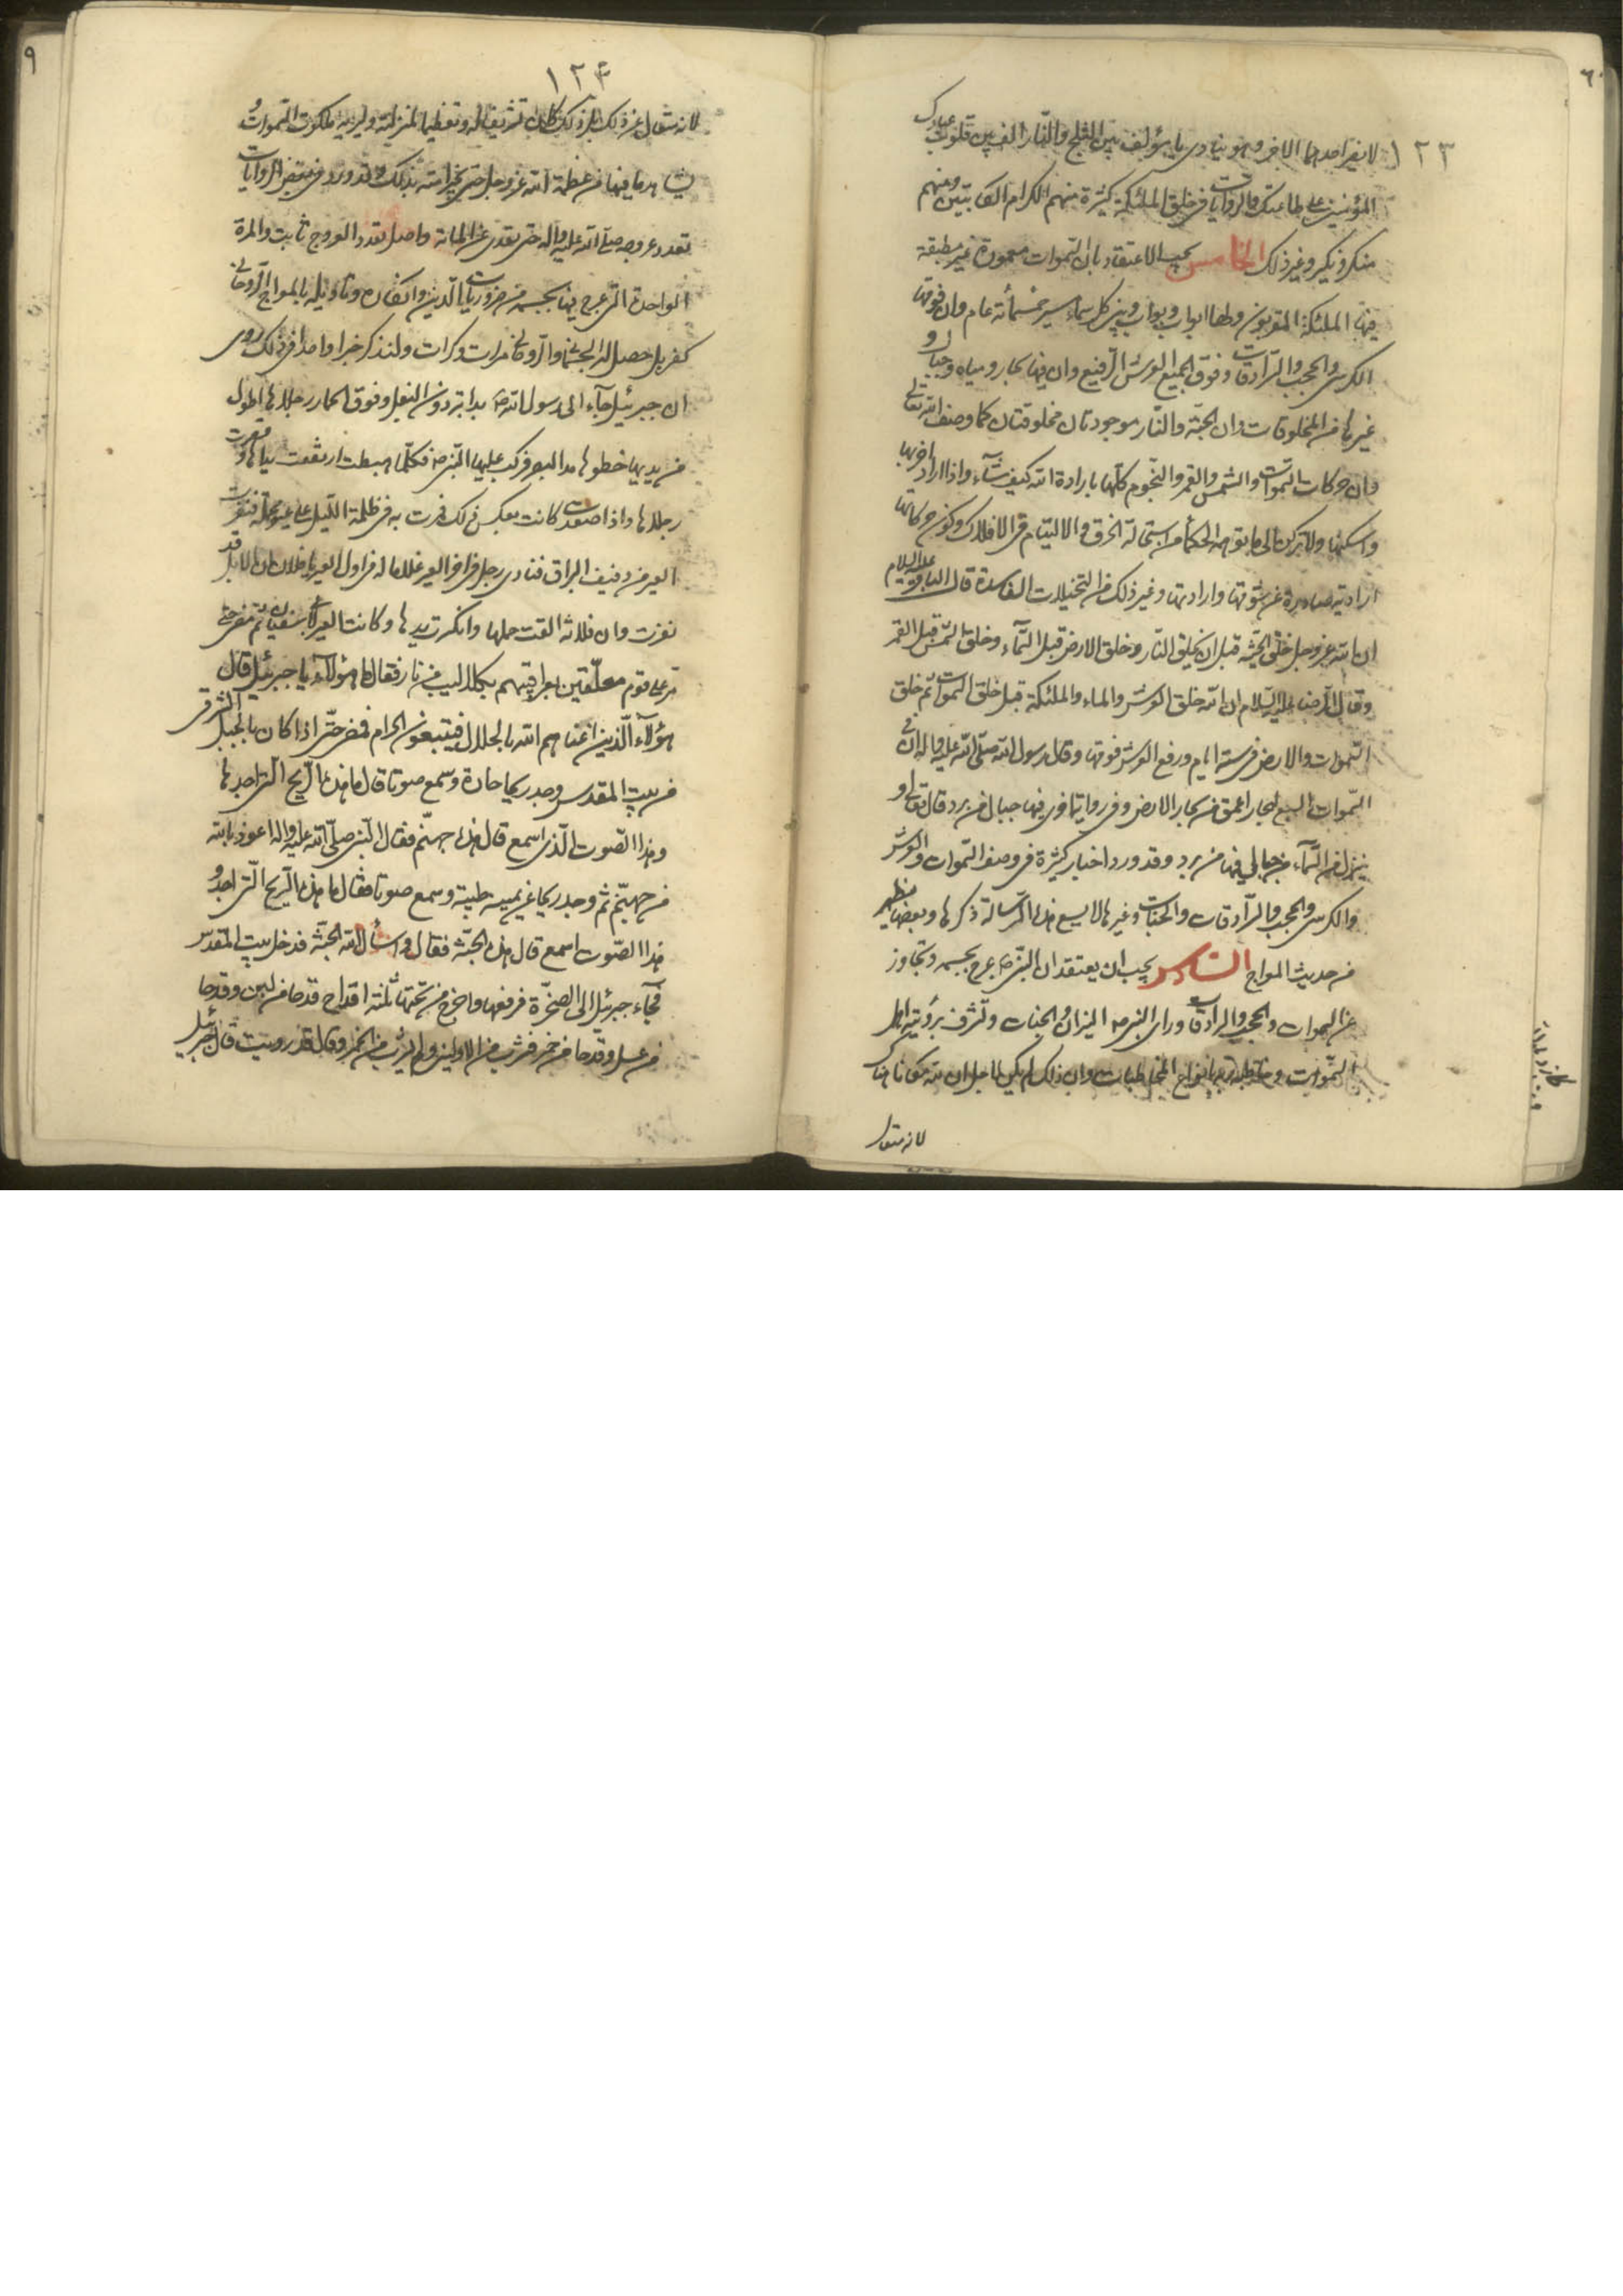 ١٢٣
لا يضر احدهما الاخر وهو ينادى يا مؤلف بين الثلج والنار الف بين قلوب عبادك
المؤمنين على طاعتك والروايات فى خلق الملئكة كثيرة منهم الكرام الكاتبين ومنهم
منكر ونكير وغير ذلك الخامس يجب الاعتقاد بان السموات معمورة غير مطبقة
فيها الملئكة المقربون ولها ابواب وبواب وبين كل سماء مسير خمسمأة عام وان فوقها
الكرسى والحجب والسرادقات وفوق الجميع العرش الرفيع وان فيها بحار ومياه وجبال و
غيرها من المخلوقات وان الجنة والنار موجودتان مخلوقتان كما وصف الله تعالى
وان حركات السموات والشمس والقمر والنجوم كلها بارادة الله كيف شآء واذا اراد اخربها
واسكنها ولا تركن الى ما يقوله الحكمآء من استحالة الخرق والالتيام فى الافلاك وكون حركاتها
ارادية صادرة عن شوقها وارادتها وغير ذلك من التخيلات الفاسدة قال الباقر عليه السلام
ان الله عز وجل خلق الجنة قبل ان يخلق النار وخلق الارض قبل السمآء وخلق الشمس قبل القمر
وقال الرضا عليه السلام ان الله خلق العرش والماء والملئكة قبل خلق السموات ثم خلق
السموات والارض فى ستة ايام ورفع العرش فوقها وقال رسول الله صلى الله عليه واله ان فى
السموات السبع لبحارا عمق من بحار الارض وفى رواية اخرى فيها جبال من برد قال تعالى و
ينزل من السمآء من جبال فيها من برد وقد ورد اخبار كثيرة فى وصف السموات والعرش
والكرسى والحجب والسرادقات والجنات وغيرها لا يسع هذه الرسالة ذكرها وبعضها يظهر
من حديث المعراج السادس يجب ان يعتقد ان النبى ص عرج بجسمه وتجاوز
عن السموات والحجب والسرادقات وراى النبى ص الميزان والجنات وتشرف برؤيته اهل
السموات وخاطبه ربه بانواع المخاطبات وان ذلك لم يكن لاجل ان لله مكانا هناك
لانه متعال
١٢٤
لانه متعال عن ذلك بل ذلك كان تشريفا له وتعظيما لمنزلته وليريه ملكوت السموات و
يشاهد ما فيها من عظمة الله عز وجل حتى يخبر امته بذلك وقد ورد فى بعض الروايات
تعدد عروجه صلى الله عليه واله حتى تعدى عن المائة واصل تعدد العروج ثابت والمرة
الواحدة التى عرج فيها بجسمه من ضروريات الدين وانكاره وتاويله بالمعراج الروحانى
كفر بل حصل له الجسمانى والروحانى مرات وكرات ولنذكر خبرا واحدا فى ذلك روى
ان جبرئيل جآء الى رسول الله ص بدابة دون البغل وفوق الحمار رجلاها اطول
من يديها خطوها مد البصر فركب عليها النبى ص فكلما هبطت ارتفعت يداها وقصرت
رجلاها واذا صعدت كانت بعكس ذلك فمرت به فى ظلمة الليل على عير محملة فنفرت
العير من دفيف البراق فنادى رجل فى اخر العير غلاما له فى اول العير يا فلان ان الابل قد
نفرت وان فلانة القت حملها وانكسرت يدها وكانت العير لابى سفيان ثم مضى حتى
مر على قوم معلقين بعراقيبهم بكلاليب من نار فقال ما هؤلآء يا جبرئيل قال
هؤلآء الذين اغناهم الله بالحلال فيتبعون الحرام فمضى حتى اذا كان بالجبل الشرقى
من بيت المقدس وجد ريحا حادة وسمع صوتا قال ما هذه الريح التى اجدها
وهذا الصوت الذى اسمع قال هذه جهنم فقال النبى صلى الله عليه واله اعوذ بالله
من جهنم ثم وجد ريحا عن يمينه طيبة وسمع صوتا فقال ما هذه الريح التى اجد و
هذا الصوت اسمع قال هذه الجنة فقال اسأل الله الجنة فدخل بيت المقدس
فجآء جبرئيل الى الصخرة فرفعها واخرج من تحتها ثلثة اقداح قدحا من لبن وقدحا
من عسل وقدحا من خمر فشرب من الاولين ولم يشرب من الخمر وقال قد رويت قال جبرئيل